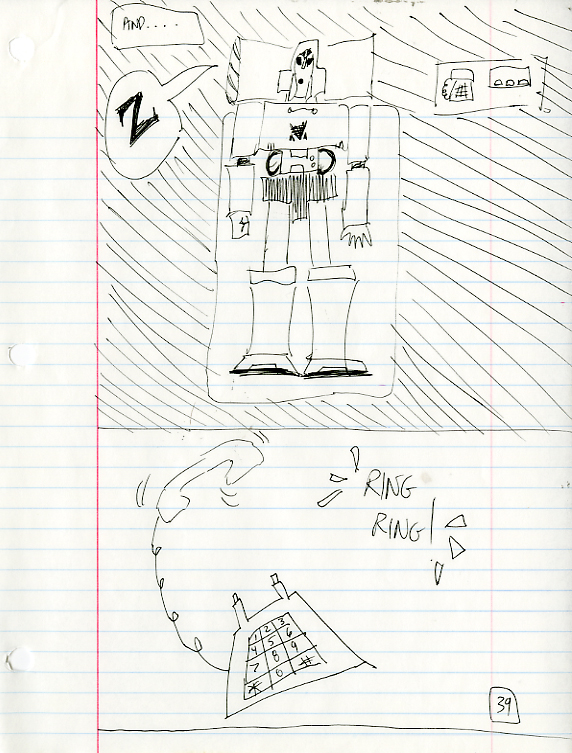 AND....
Z
RING
RING!
1 2 3
4 5 6
7 8 9
* 0 #
39